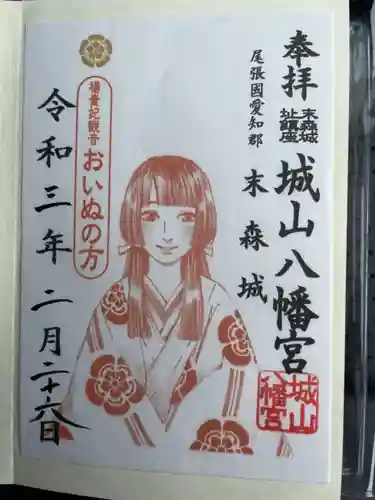 奉拝
末森城
址鎮座
城山八幡宮
尾張國愛知郡
末森城
楊貴妃観音
おいぬの方
令和三年二月二十六日
城山
八幡宮